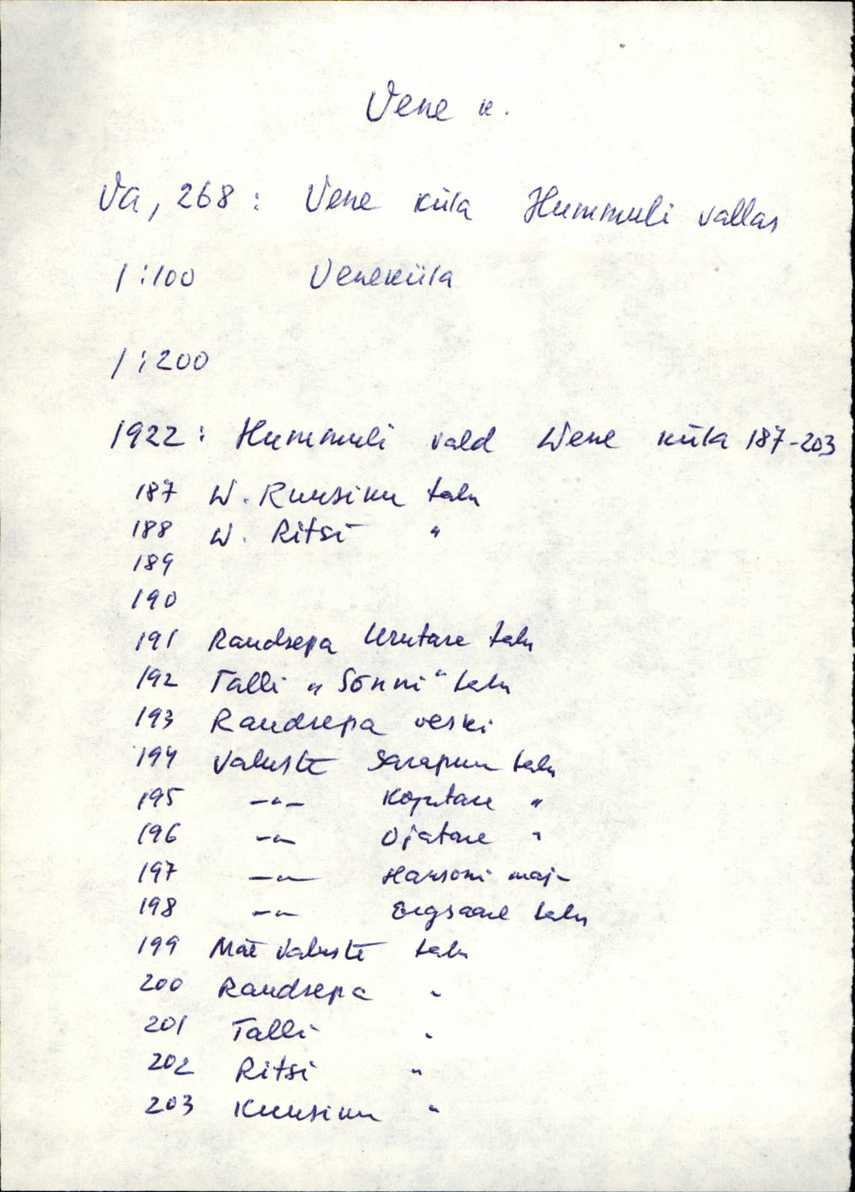 Vene k.
Va, 268 : Vene küla Hummuli vallas
1:100 Veneküla
1:200
1922 : Hummuli vald Wene küla 187-203
187 W. Kuusinu talu
188 W. Ritsi "
189
190
191 Raudsepa Urutare talu
192 Talli „Sõnni" talu
193 Raudsepa veski
194 Valuste Sarapuu talu
195 -"- Koputare "
196 -"- Ojatare "
197 -"- Hansoni maj-
198 -"- talu
199 Mäe Valuste talu
200 Raudsepa "
201 Talli "
202 Ritsi "
203 Kuusinu "